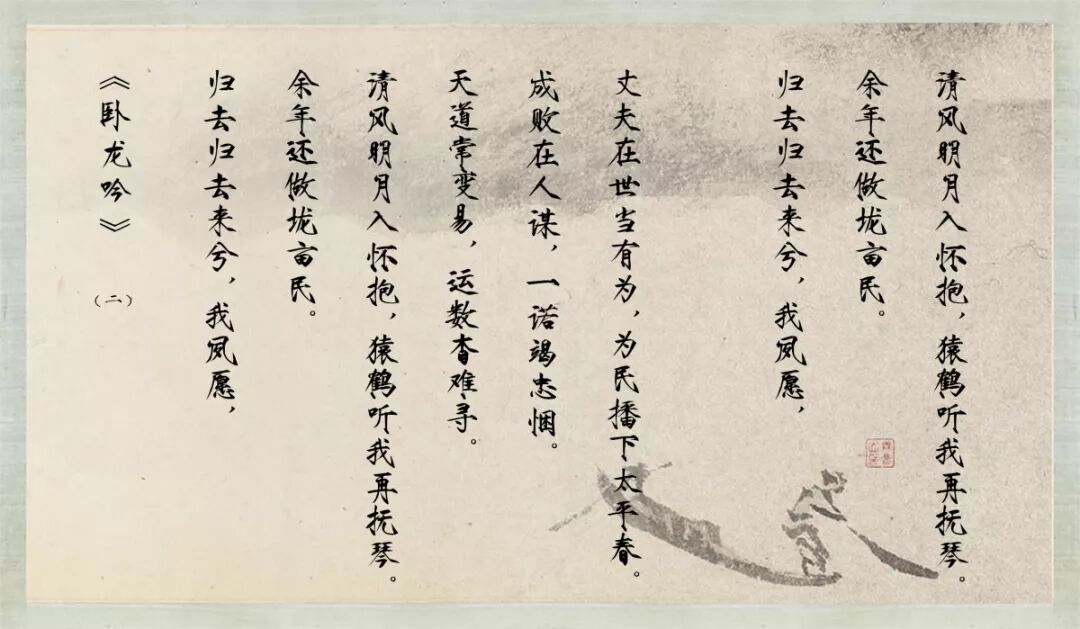 《卧龙吟》
（二）
归去归去来兮，我夙愿，
余年还做垅亩民。
清风明月入怀抱，猿鹤听我再抚琴。
天道常变易，运数杳难寻。
成败在人谋，一诺竭忠悃。
丈夫在世当有为，为民播下太平春。
归去归去来兮，我夙愿，
余年还做垅亩民。
清风明月入怀抱，猿鹤听我再抚琴。